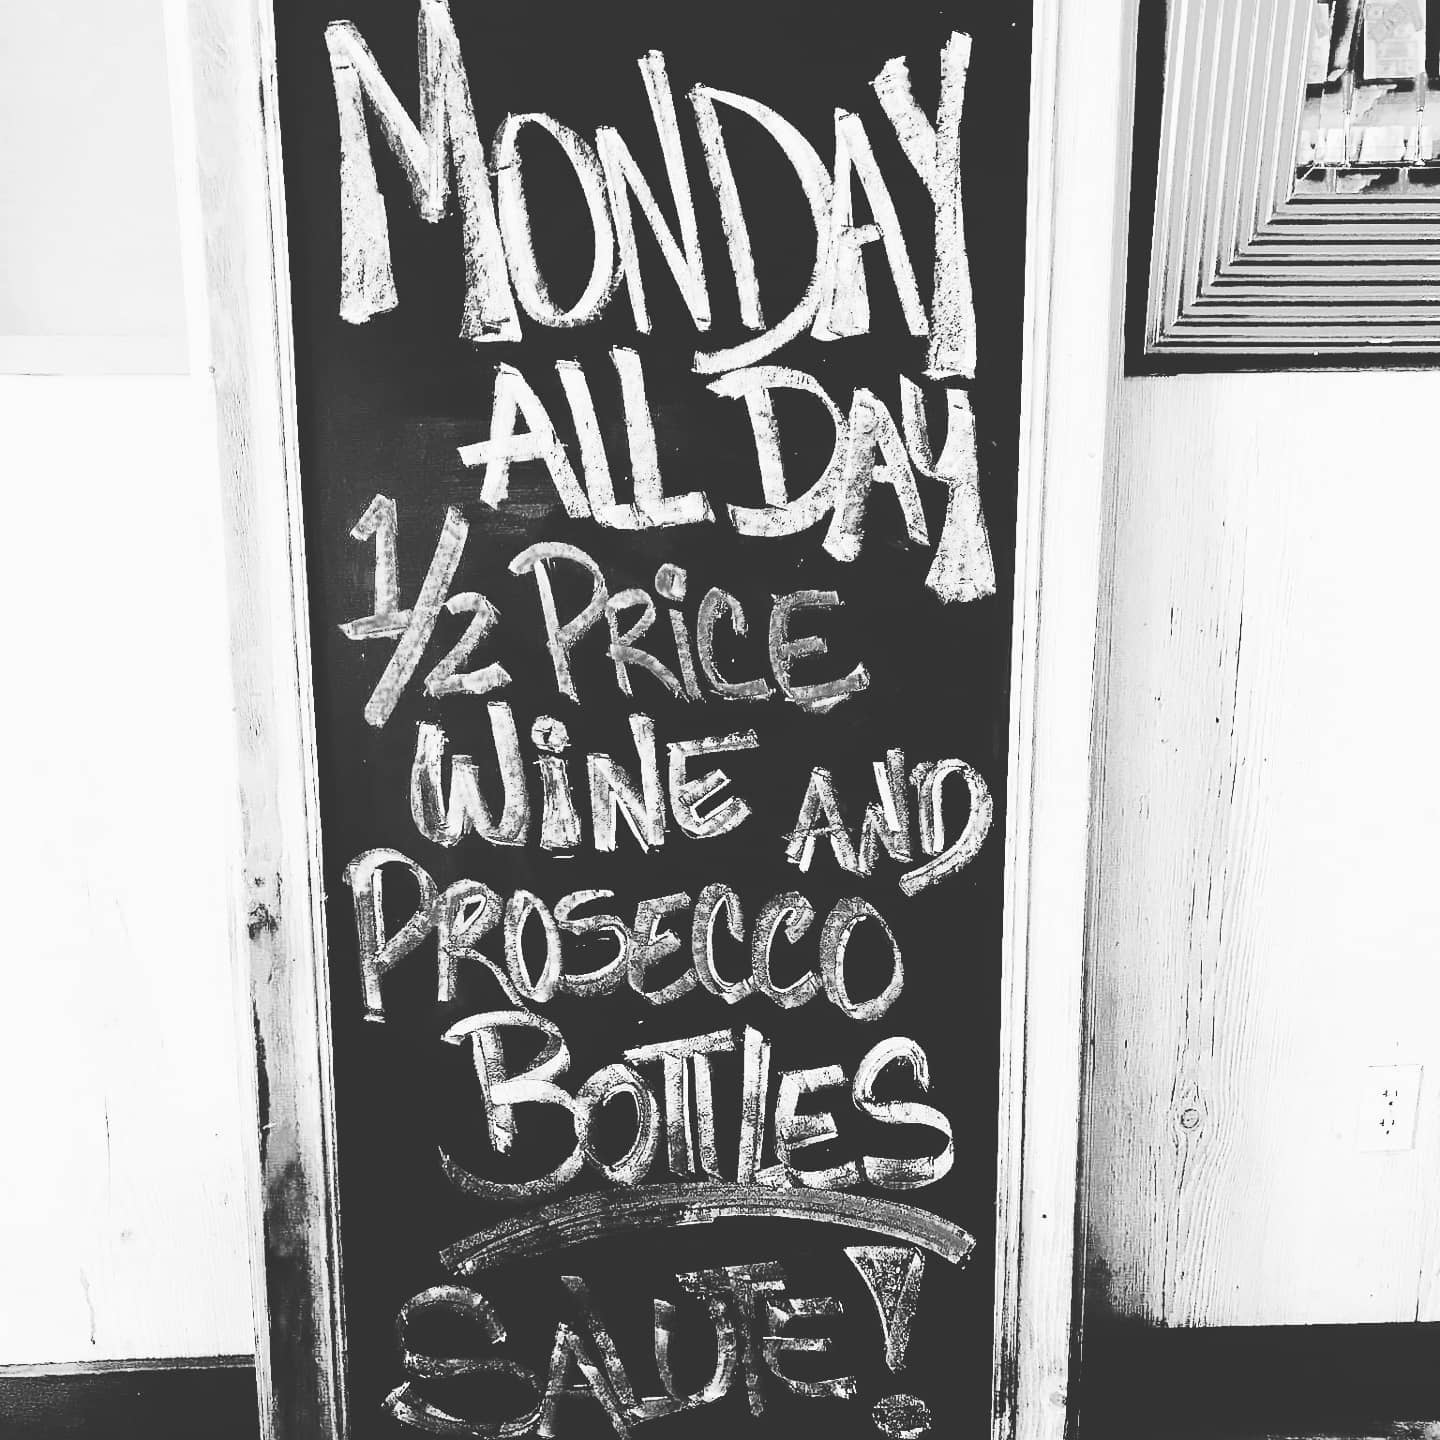 MONDAY
ALL DAY
1/2 PRICE
WINE AND
PROSECCO
BOTTLES
SALUTE!